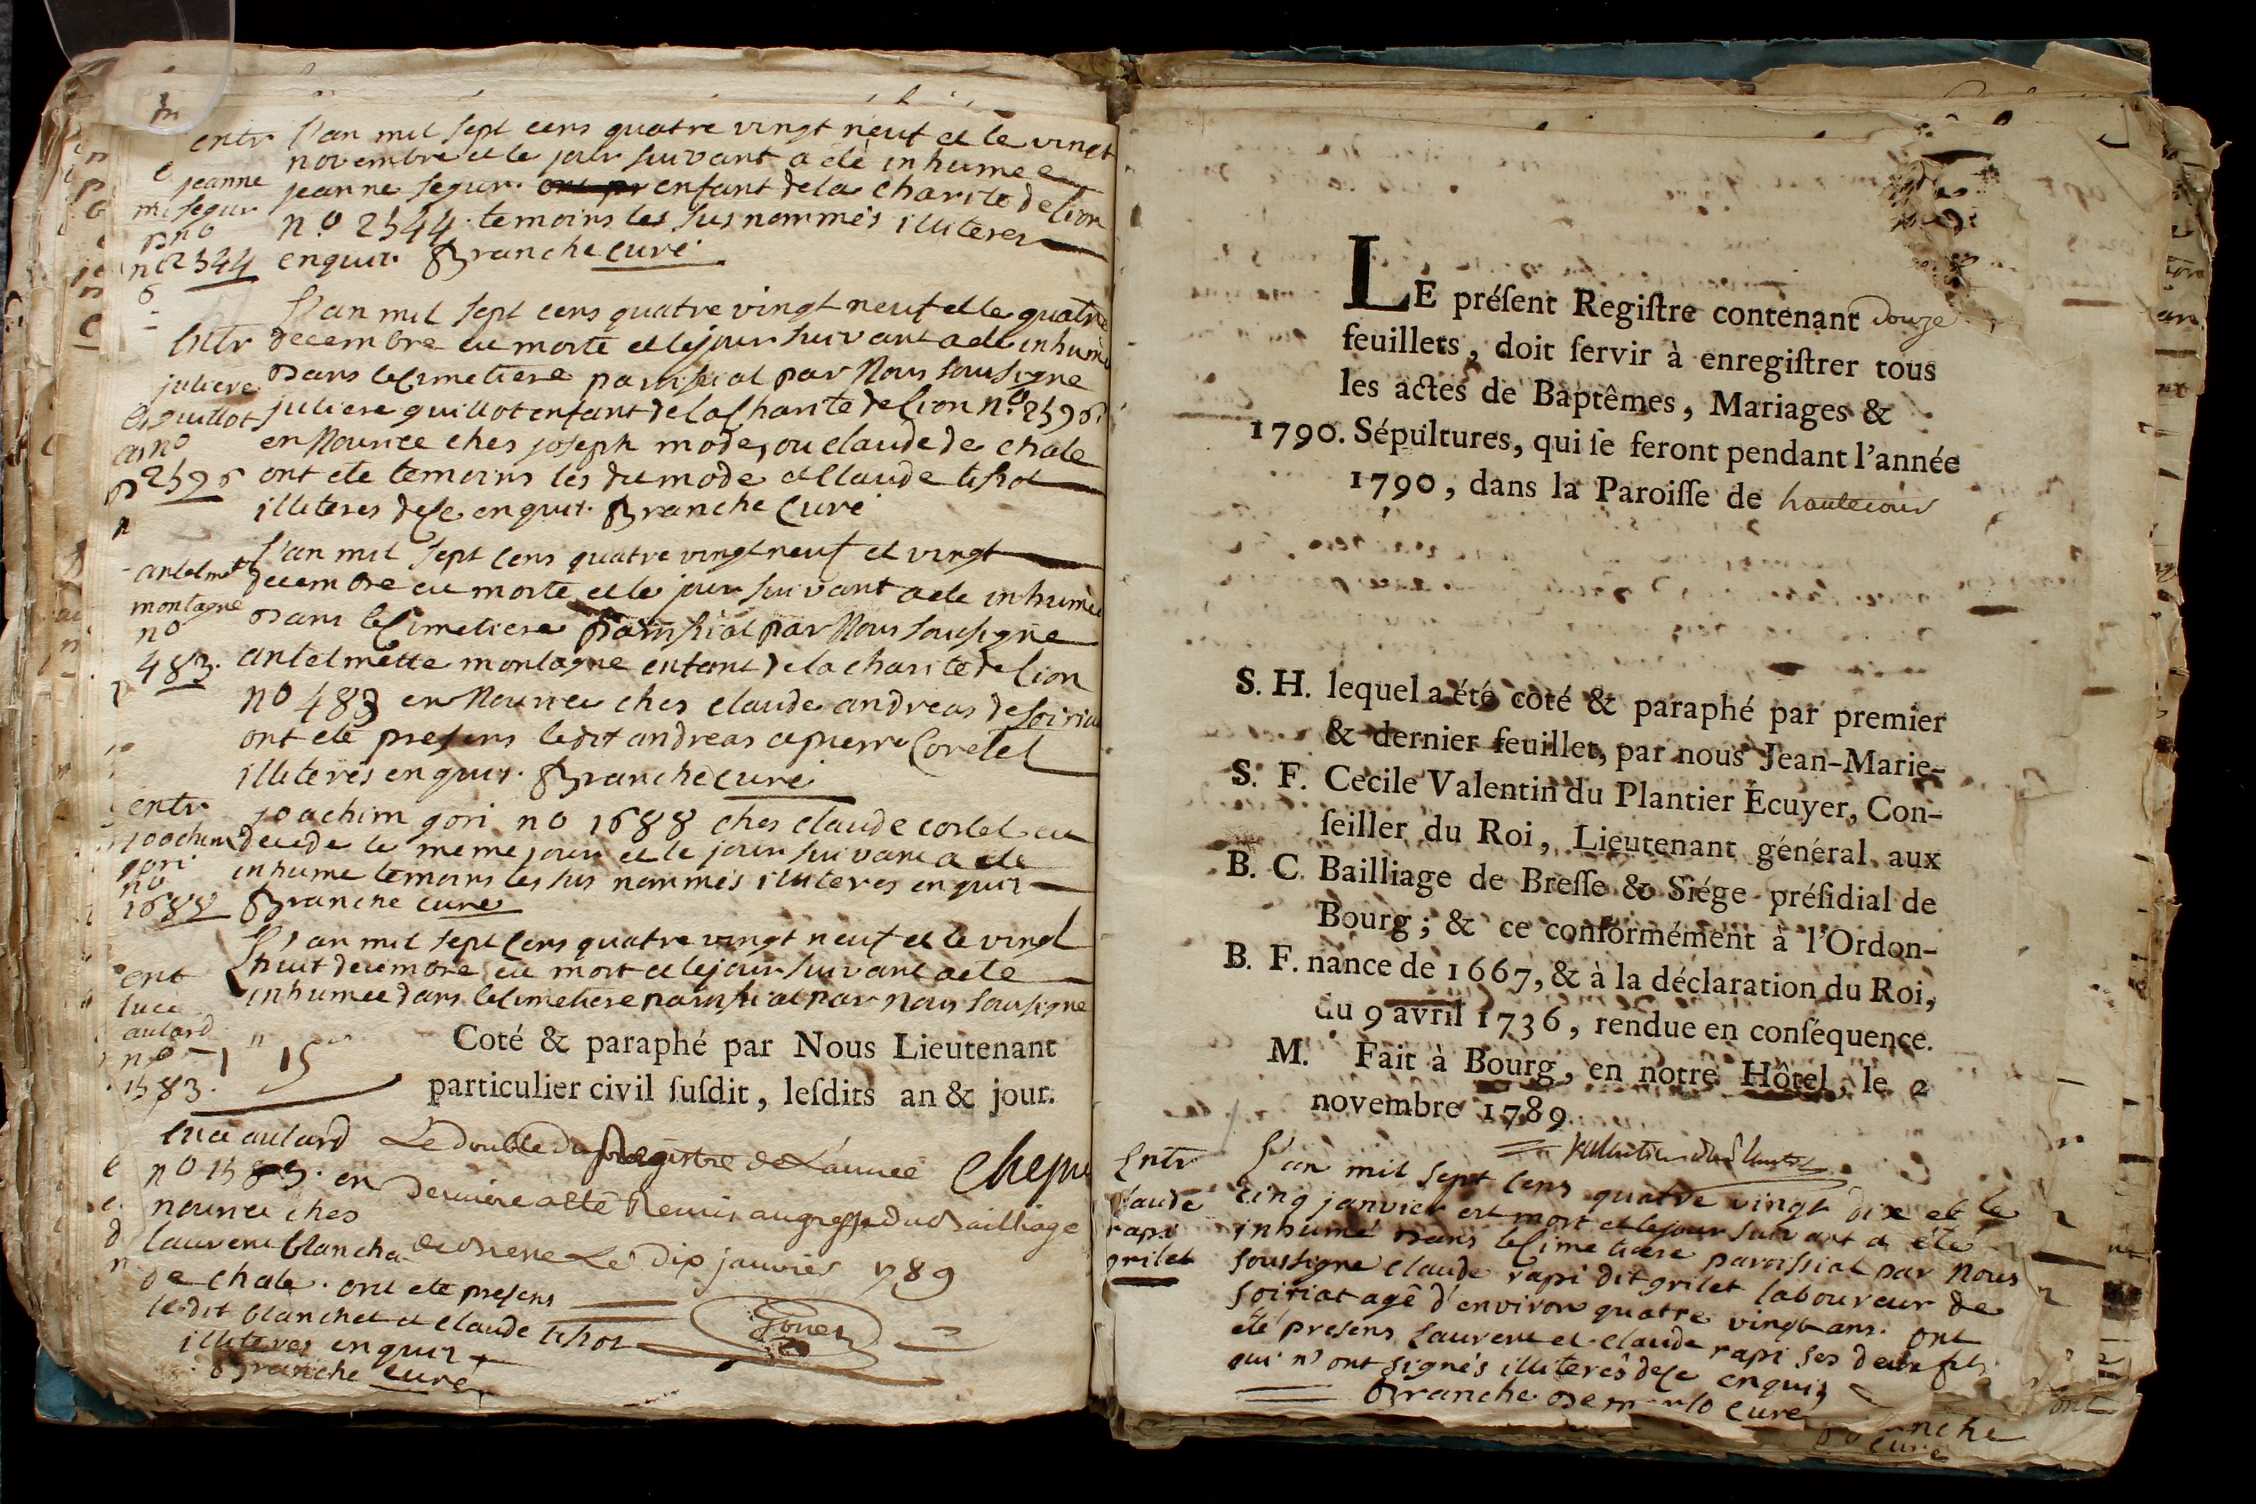 entr
jeanne
segur
no
2544
L'an mil sept cens quatre vingt neuf et le vingt
novembre et le jour suivant a été inhumee
jeanne segur. enfant de la charite de lion
n.o 2544. temoins les sus nommés illiteres
enquis. Branche curé
Entr
juliere
guillot
no
2596
L'an mil sept cens quatre vingt neuf et le quatre
decembre est morte et le jour suivant a été inhumée
dans le cimetiere paroissial par Nous soussigne
juliere guillot enfant de la Charite de lion n.o 2596
en Nourice ches joseph mode, ou claude de chale
ont ete temoins les du mode et Claude tissot
illiteres de ce enquis. Branche Curé
antelmet
montagne
no
483.
L'an mil sept cens quatre vingt neuf et vingt
decembre est morte et le jour suivant a ete inhumée
dans le cimetiere paroissial par Nous soussigne
antelmette montagne enfant de la charite de lion
no 483 en Nourice ches claude andreas de soiria
ont eté presens ledit andreas et pierre Coretel
illiterés enquis. Branche curé
entr
joachim
gori
no
1688
joachim gori no 1688 ches claude cortel est
decede le meme jour et le jour suivant a ete
inhume temoins les sus nommés illiteres enquis
Branche curé
ent
luce
autard
no
1583.
L'an mil sept cens quatre vingt neuf et le vingt
huit decembre est mort et le jour suivant a ete
inhumee dans le cimetiere paroissial par nous soussigne
15
Coté & paraphé par Nous Lieutenant
particulier civil ſuſdit, leſdits an & jour.
luce autard
no 1583. en
nourice ches
laurent blanchet
de chale. ont ete presens
le dit blanchet et claude tissot
illiteres enquis
Branche curé
Le double du Registre de L'année
derniere a été Remis au greffe du Bailliage
de Bresse Le dix janvier 1789
LE préſent Regiſtre contenant douze
feuillets, doit ſervir à enregiſtrer tous
les actes de Baptêmes, Mariages &
1790. Sépultures, qui ſe feront pendant l'année
1790, dans la Paroiſſe de hautecour
S. H. lequel a été coté & paraphé par premier
& dernier feuillet, par nous Jean-Marie-
S. F. Cecile Valentin du Plantier Écuyer, Con-
ſeiller du Roi, Lieutenant général aux
B. C. Bailliage de Breſſe & Siége préſidial de
Bourg; & ce conformément à l'Ordon-
B. F. nance de 1667, & à la déclaration du Roi,
du 9 avril 1736, rendue en conſéquence.
M. Fait à Bourg, en notre Hôtel, le 2
novembre 1789.
Entr
claude
rapi
grilet
L'an mil sept cens quatre vingt dix et le
cinq janvier est mort et le jour suivant a été
inhumé dans le cimetiere paroissial par Nous
soussigne claude rapi dit grilet laboureur de
soiriat agé d'environ quatre vingt ans. ont
été presens laurent et claude rapi ses deux fils
qui n'ont signés illiterés de ce enquis
Branche curé